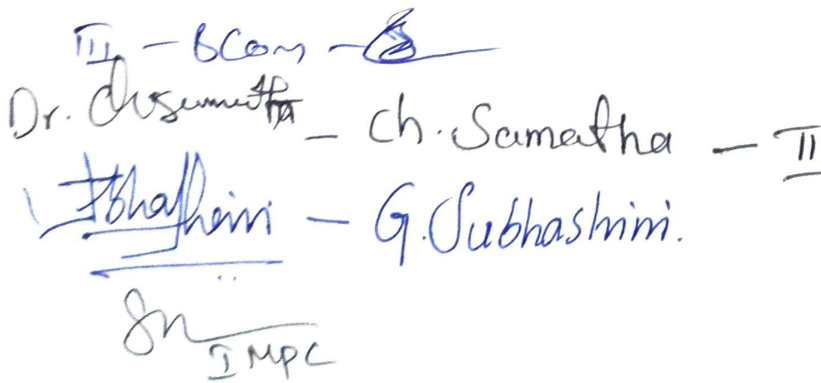 III - BCom -
Dr. Ch Samatha - Ch. Samatha - II
- G. Subhashini.
I MPC